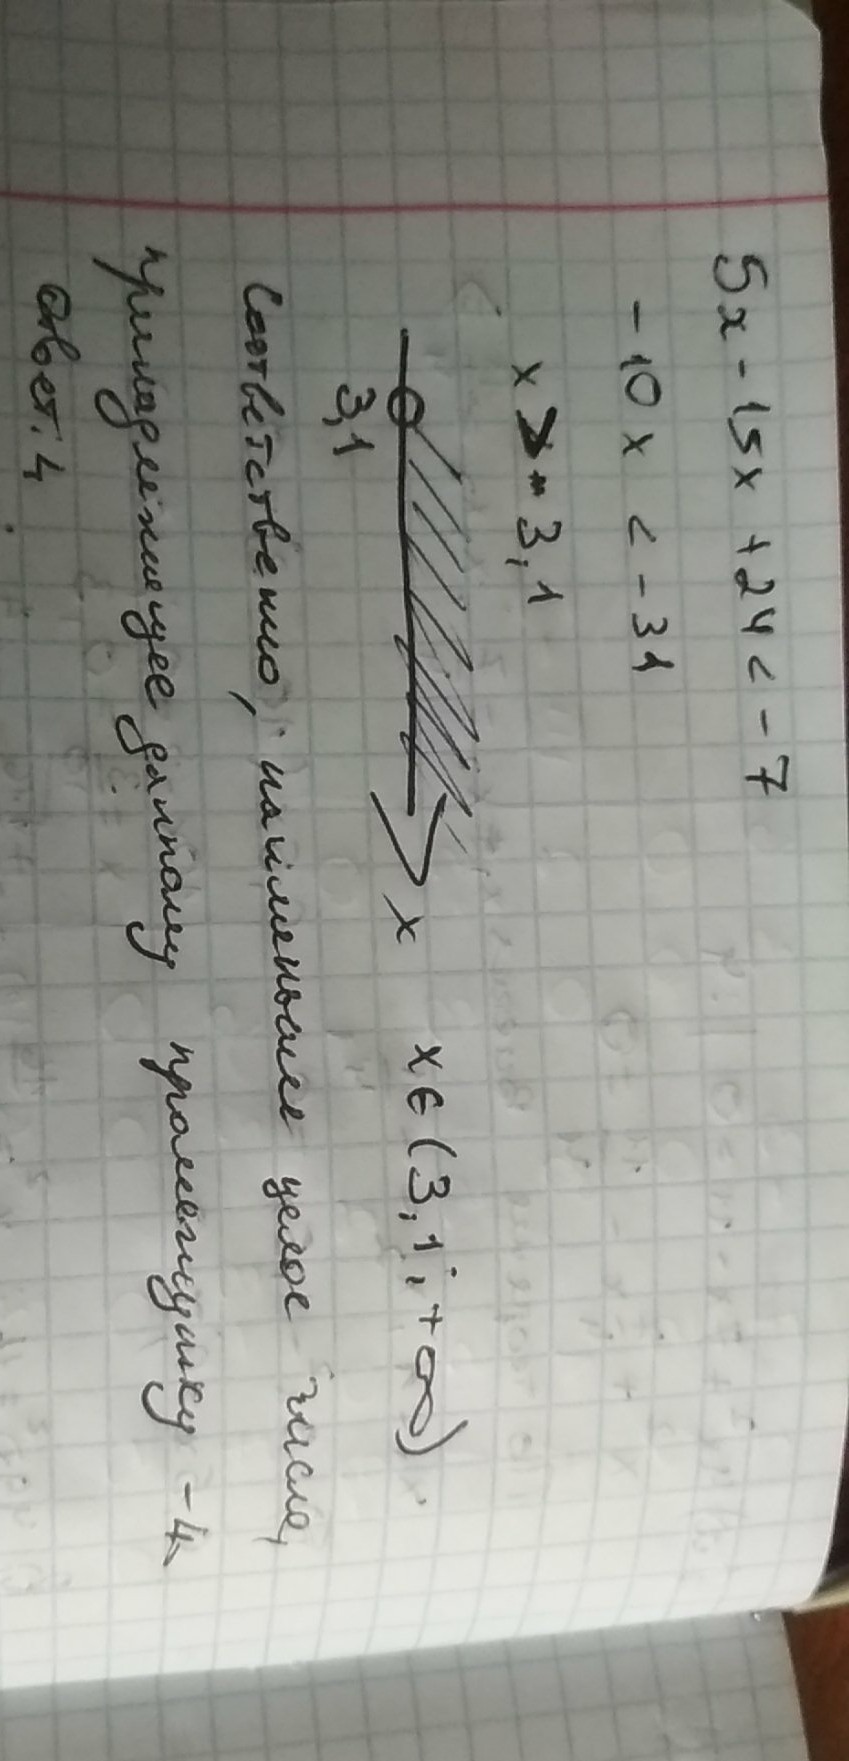 5x - 15x + 24 < - 7
- 10 x < - 31
x > 3,1
3,1 x x ∈ (3,1; +∞)
Соответственно, наименьшее целое число,
принадлежащее данному промежутку - 4
Ответ: 4